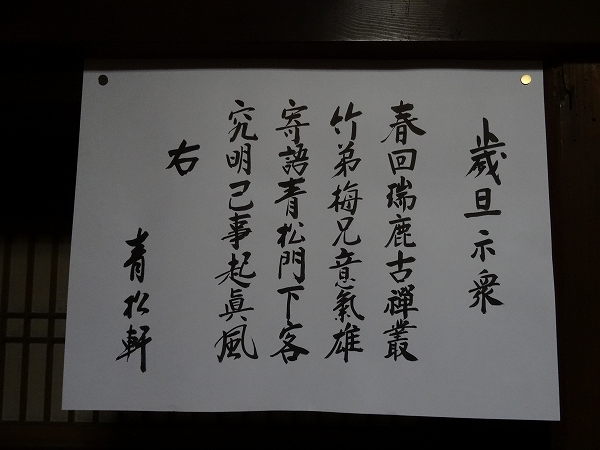 歲旦示衆
春回瑞鹿古禪叢
竹弟梅兄意氣雄
寄語青松門下客
究明己事起眞風
右
青松軒